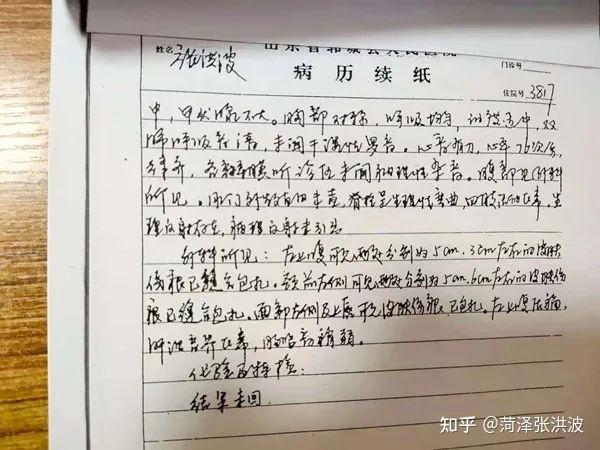 山东省郓城县人民医院
姓名 张洪波 门诊号
病历续纸 住院号 3817
中,甲状腺不大。胸部对称,呼吸均匀,语颤适中,双
肺呼吸音清,未闻干湿性罗音。心音有力,心率76次/分,
律齐,各瓣膜听诊区未闻病理性杂音。腹部见外科
所见。肛门外生殖器未查,脊柱呈生理性弯曲,四肢活动正常,生
理反射存在,病理反射未引出
外科所见:左上腹可见两处分别为5cm、3cm左右的皮肤
伤痕已缝合包扎。额部左侧可见两处分别为5cm、6cm左右的皮肤伤
痕已缝合包扎。面部左侧及上唇可见皮肤伤痕已包扎。左上腹压痛,
肝浊音界正常,肠鸣音稍弱。
化验及特检:
结果未回
知乎 @菏泽张洪波